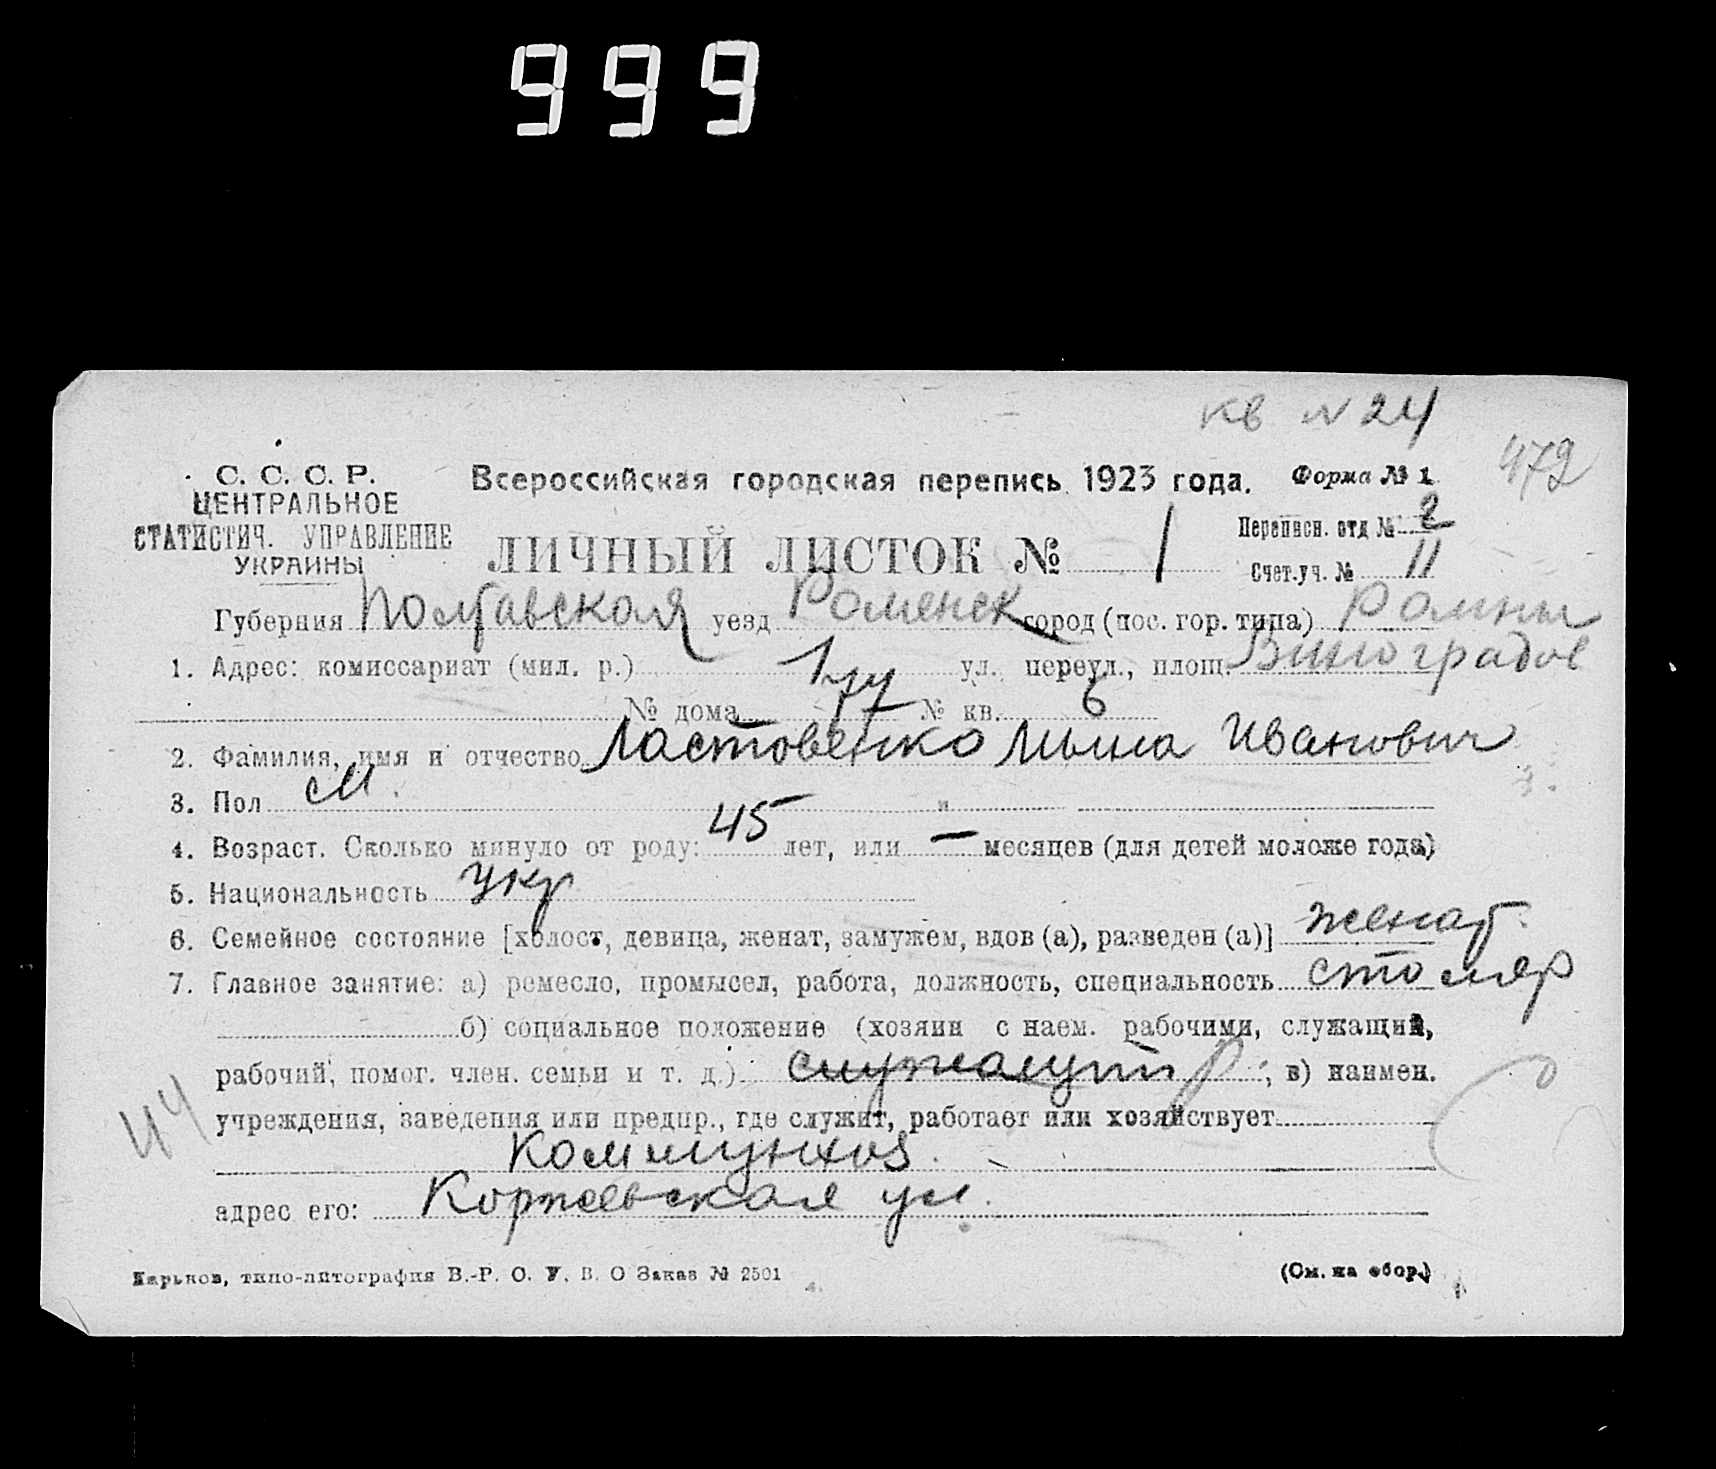 999
кв № 24
472
С. С. С. Р.
ЦЕНТРАЛЬНОЕ
СТАТИСТИЧ. УПРАВЛЕНИЕ
УКРАИНЫ
Всероссийская городская перепись 1923 года. Форма № 1
ЛИЧНЫЙ ЛИСТОК № 1
Переписн. отд № 2
Счет.уч. № 11
Губерния Полтавская уезд Роменск город (пос. гор. типа) Ромны
1. Адрес: комиссариат (мил. р.) 1 ул. переул., площ. Виноградов
№ дома № кв. 6
2. Фамилия, имя и отчество Ластовенко Мина Иванович
3. Пол М.
4. Возраст. Сколько минуло от роду: 45 лет, или — месяцев (для детей моложе года)
5. Национальность укр
6. Семейное состояние [холост, девица, женат, замужем, вдов (а), разведен (а)] женат.
7. Главное занятие: а) ремесло, промысел, работа, должность, специальность столяр
б) социальное положение (хозяин с наем. рабочими, служащий,
рабочий, помог. член. семьи и т. д.) служащий р; в) наимен.
учреждения, заведения или предпр., где служит, работает или хозяйствует
44
Коммунхоз.
адрес его: Коржевская ул.
Харьков, типо-литография В.-Р. О. У. В. О Заказ № 2501
(См. на обор.)